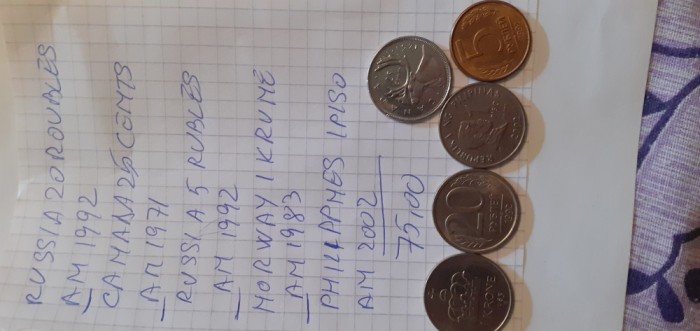 RUSSIA 20 ROUBLES
AM 1992
CANADA 25 CENTS
AM 1971
RUSSIA 5 RUBLES
AM 1992
NORWAY 1 KRUNE
AM 1983
PHILIPPINES 1 PISO
AM 2002
75,00
5
20